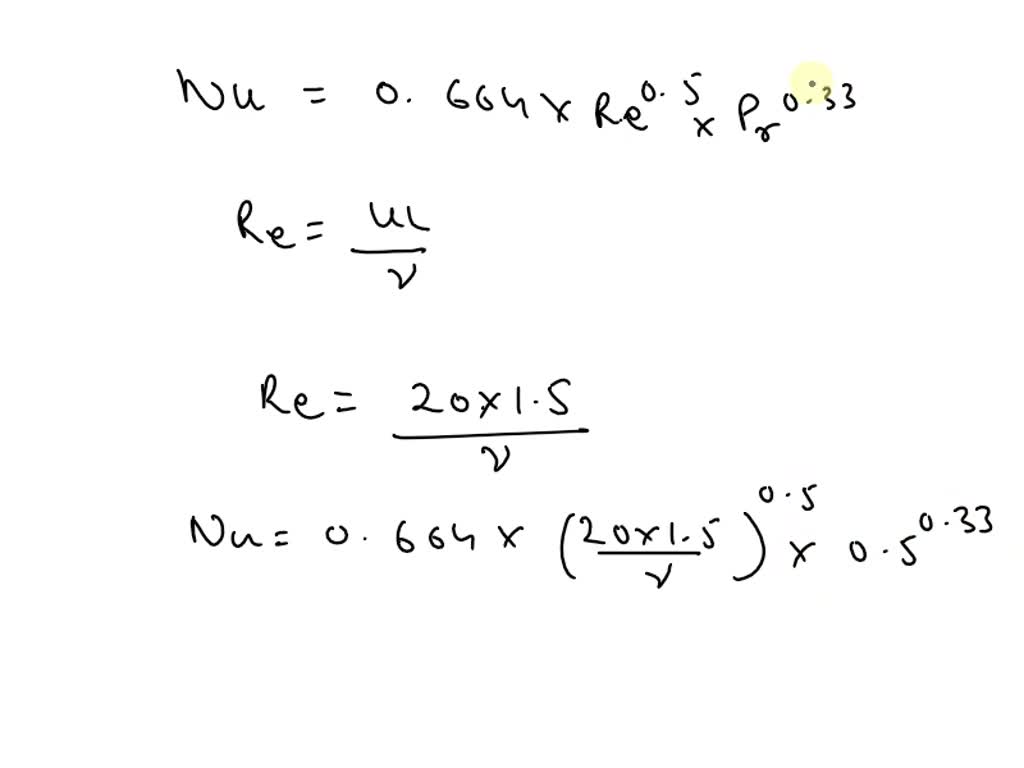 Nu = 0.664 × Re^0.5 × Pr^0.33
Re = uL/ν
Re = 20×1.5/ν
Nu = 0.664 × (20×1.5/ν)^0.5 × 0.5^0.33